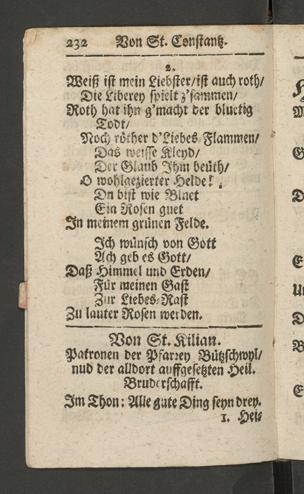 232 Von St. Constantz.
2.
Weiß ist mein Liebster/ist auch roth/
Die Liberey spielt z'sammen/
Roth hat ihn g'macht der bluetig
Todt/
Noch röther d'Liebes-Flammen/
Das weisse Kleyd/
Der Glaub Ihm beüth/
O wohlgezierter Helde!
Du bist wie Bluet
Ein Rosen guet
In meinem grünen Felde.
Ich wünsch von Gott
Ach geb es Gott/
Daß Himmel und Erden/
Für meinen Gast
Zur Liebes-Rast
Zu lauter Rosen werden.
Von St. Kilian.
Patronen der Pfarrey Bützschwyl/
und der alldort auffgesetzten Heil.
Bruderschafft.
Im Thon: Alle gute Ding seyn drey.
1. Hei-